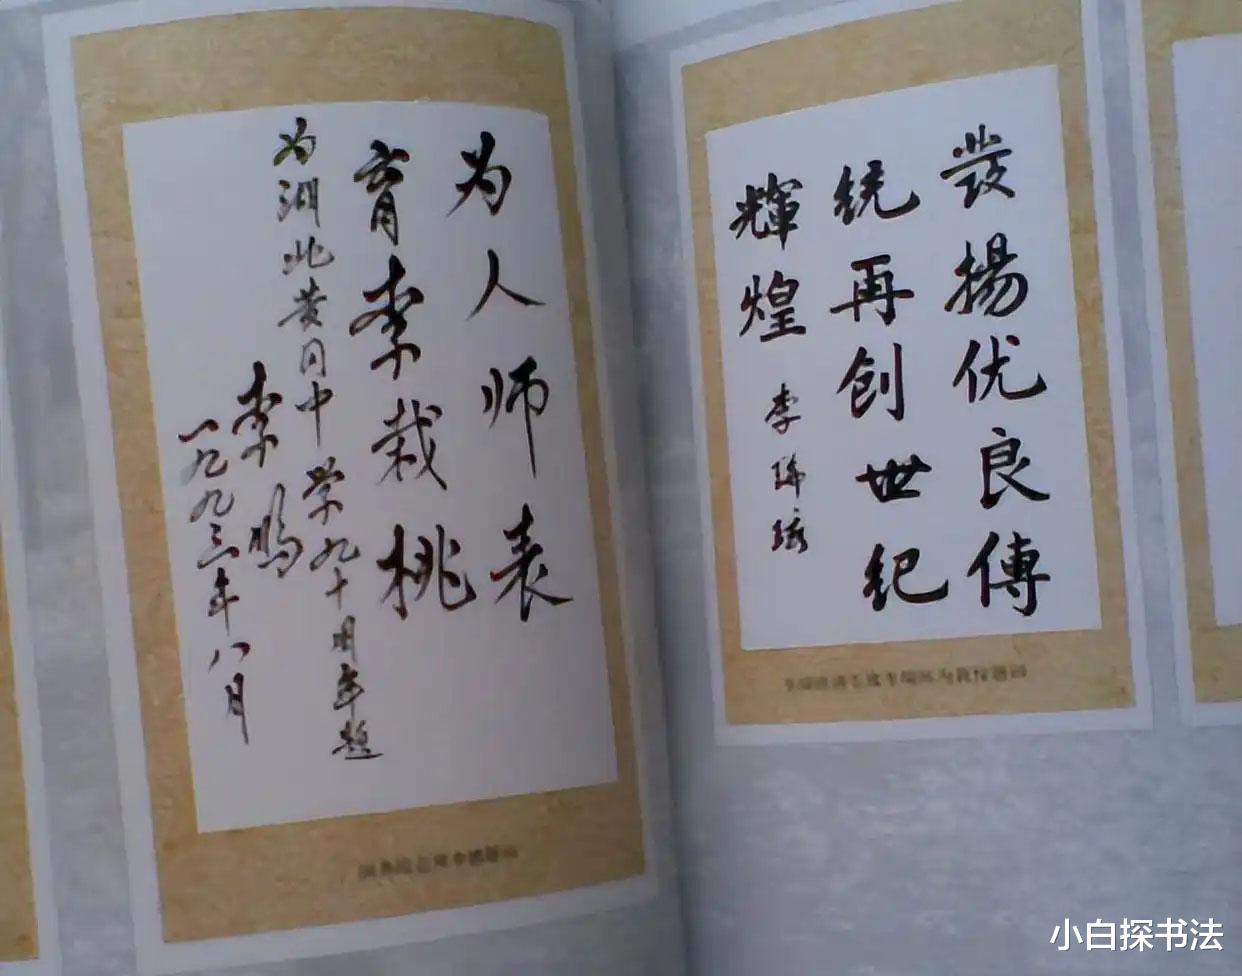 为人师表
育李栽桃
为湖北黄冈中学九十周年题
李鹏
一九九三年八月
發揚优良傳
统再创世纪
輝煌 李瑞環
小白探书法